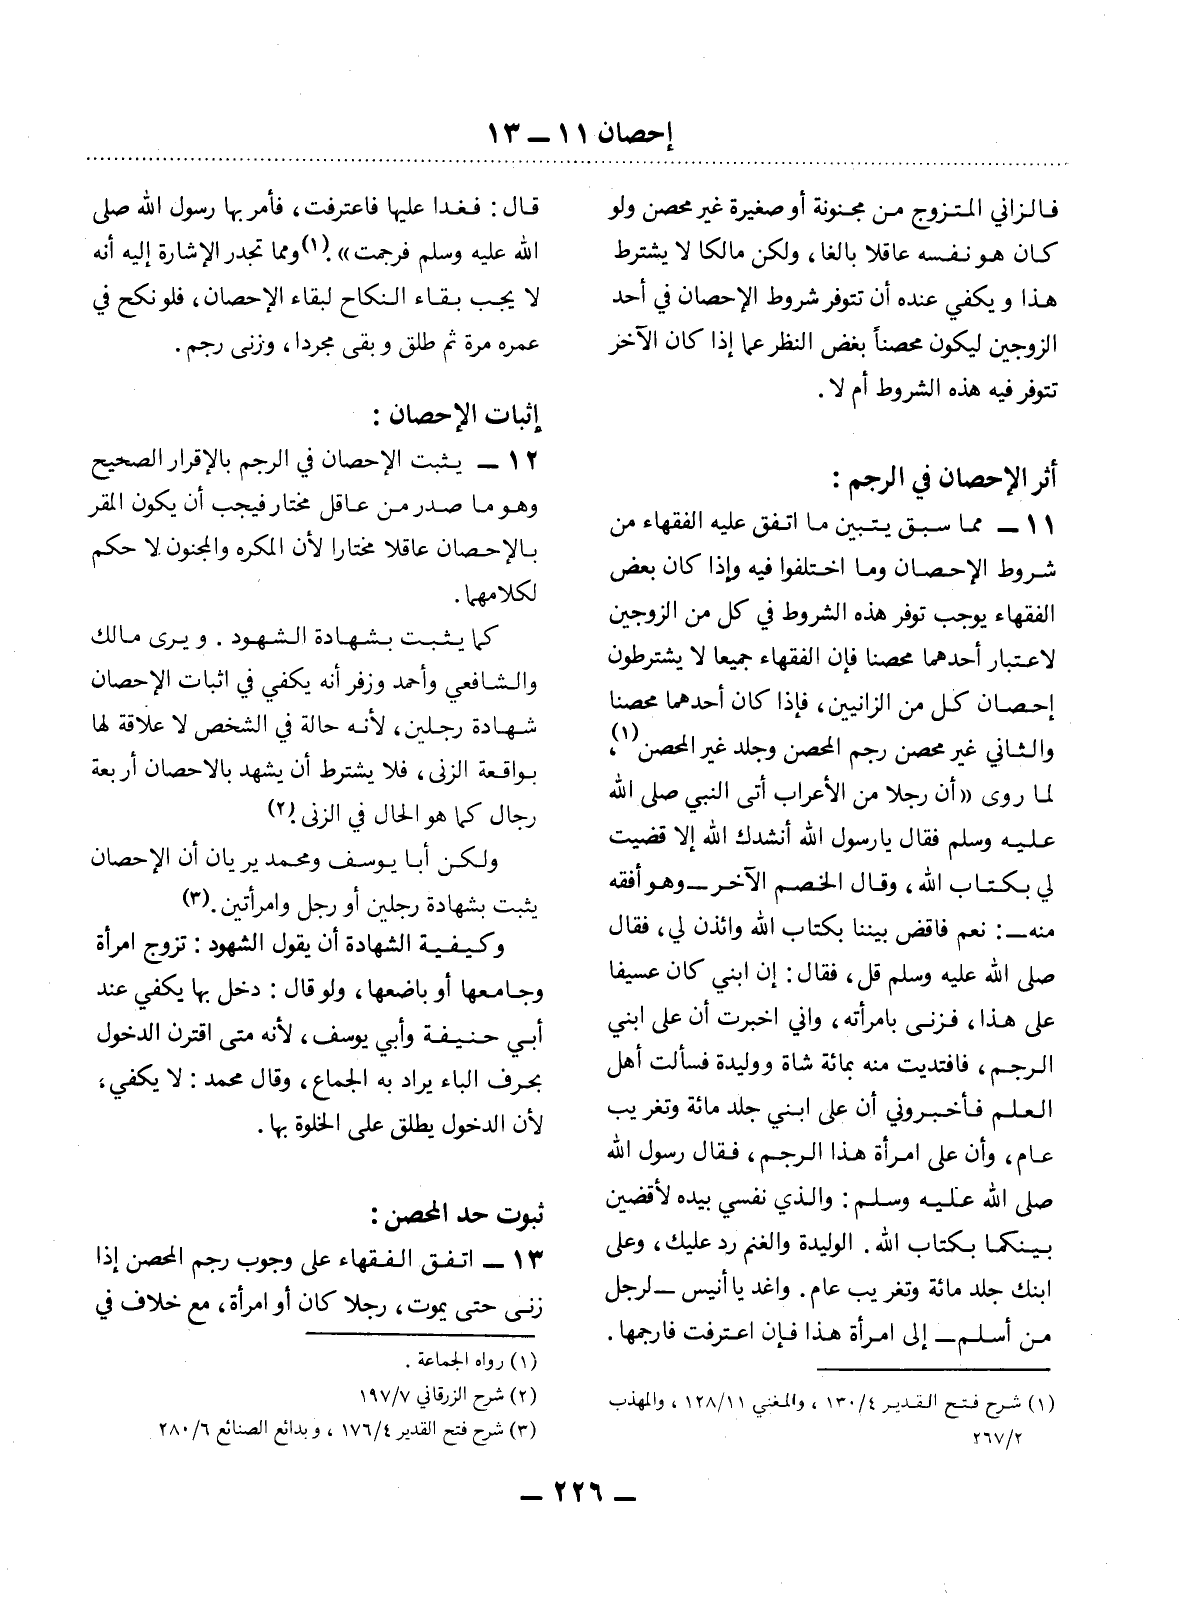 إحصان ١١ ــ ١٣
فالزاني المتزوج من مجنونة أو صغيرة غير محصن ولو
كان هو نفسه عاقلا بالغا، ولكن مالكا لا يشترط
هذا ويكفي عنده أن تتوفر شروط الإحصان في أحد
الزوجين ليكون محصناً بغض النظر عما إذا كان الآخر
تتوفر فيه هذه الشروط أم لا.
أثر الإحصان في الرجم :
١١ ــ مما سبق يتبين ما اتفق عليه الفقهاء من
شروط الإحصان وما اختلفوا فيه وإذا كان بعض
الفقهاء يوجب توفر هذه الشروط في كل من الزوجين
لاعتبار أحدهما محصنا فإن الفقهاء جميعا لا يشترطون
إحصان كل من الزانيين، فإذا كان أحدهما محصنا
والثاني غير محصن رجم المحصن وجلد غير المحصن(١)،
لما روى «أن رجلا من الأعراب أتى النبي صلى الله
عليه وسلم فقال يارسول الله أنشدك الله إلا قضيت
لي بكتاب الله، وقال الخصم الآخر ــ وهو أفقه
منه ــ : نعم فاقض بيننا بكتاب الله وائذن لي، فقال
صلى الله عليه وسلم قل، فقال: إن ابني كان عسيفا
على هذا، فزنى بامرأته، واني اخبرت أن على ابني
الرجم، فافتديت منه بمائة شاة ووليدة فسألت أهل
العلم فأخبروني أن على ابني جلد مائة وتغريب
عام، وأن على امرأة هذا الرجم، فقال رسول الله
صلى الله عليه وسلم: والذي نفسي بيده لأقضين
بينكما بكتاب الله. الوليدة والغنم رد عليك، وعلى
ابنك جلد مائة وتغريب عام. واغد يا أنيس ــ لرجل
من أسلم ــ إلى امرأة هذا فإن اعترفت فارجمها.
(١) شرح فتح القدير ٤/ ١٣٠ ، والمغني ١١/ ١٢٨ ، والمهذب
٢/ ٢٦٧
قال: فغدا عليها فاعترفت، فأمر بها رسول الله صلى
الله عليه وسلم فرجمت».(١) ومما تجدر الإشارة إليه أنه
لا يجب بقاء النكاح لبقاء الإحصان، فلو نكح في
عمره مرة ثم طلق وبقى مجردا، وزنى رجم.
إثبات الإحصان :
١٢ ــ يثبت الإحصان في الرجم بالإقرار الصحيح
وهو ما صدر من عاقل مختار فيجب أن يكون المقر
بالإحصان عاقلا مختارا لأن المكره والمجنون لا حكم
لكلامهما.
كما يثبت بشهادة الشهود . ويرى مالك
والشافعي وأحمد وزفر أنه يكفي في اثبات الإحصان
شهادة رجلين، لأنه حالة في الشخص لا علاقة لها
بواقعة الزنى، فلا يشترط أن يشهد بالاحصان أربعة
رجال كما هو الحال في الزنى.(٢)
ولكن أبا يوسف ومحمد يريان أن الإحصان
يثبت بشهادة رجلين أو رجل وامرأتين.(٣)
وكيفية الشهادة أن يقول الشهود : تزوج امرأة
وجامعها أو باضعها، ولو قال : دخل بها يكفي عند
أبي حنيفة وأبي يوسف، لأنه متى اقترن الدخول
بحرف الباء يراد به الجماع، وقال محمد : لا يكفي،
لأن الدخول يطلق على الخلوة بها .
ثبوت حد المحصن :
١٣ ــ اتفق الفقهاء على وجوب رجم المحصن إذا
زنى حتى يموت، رجلا كان أو امرأة، مع خلاف في
(١) رواه الجماعة .
(٢) شرح الزرقاني ٧/ ١٩٧
(٣) شرح فتح القدير ٤/ ١٧٦ ، وبدائع الصنائع ٦/ ٢٨٠
ــ ٢٢٦ ــ